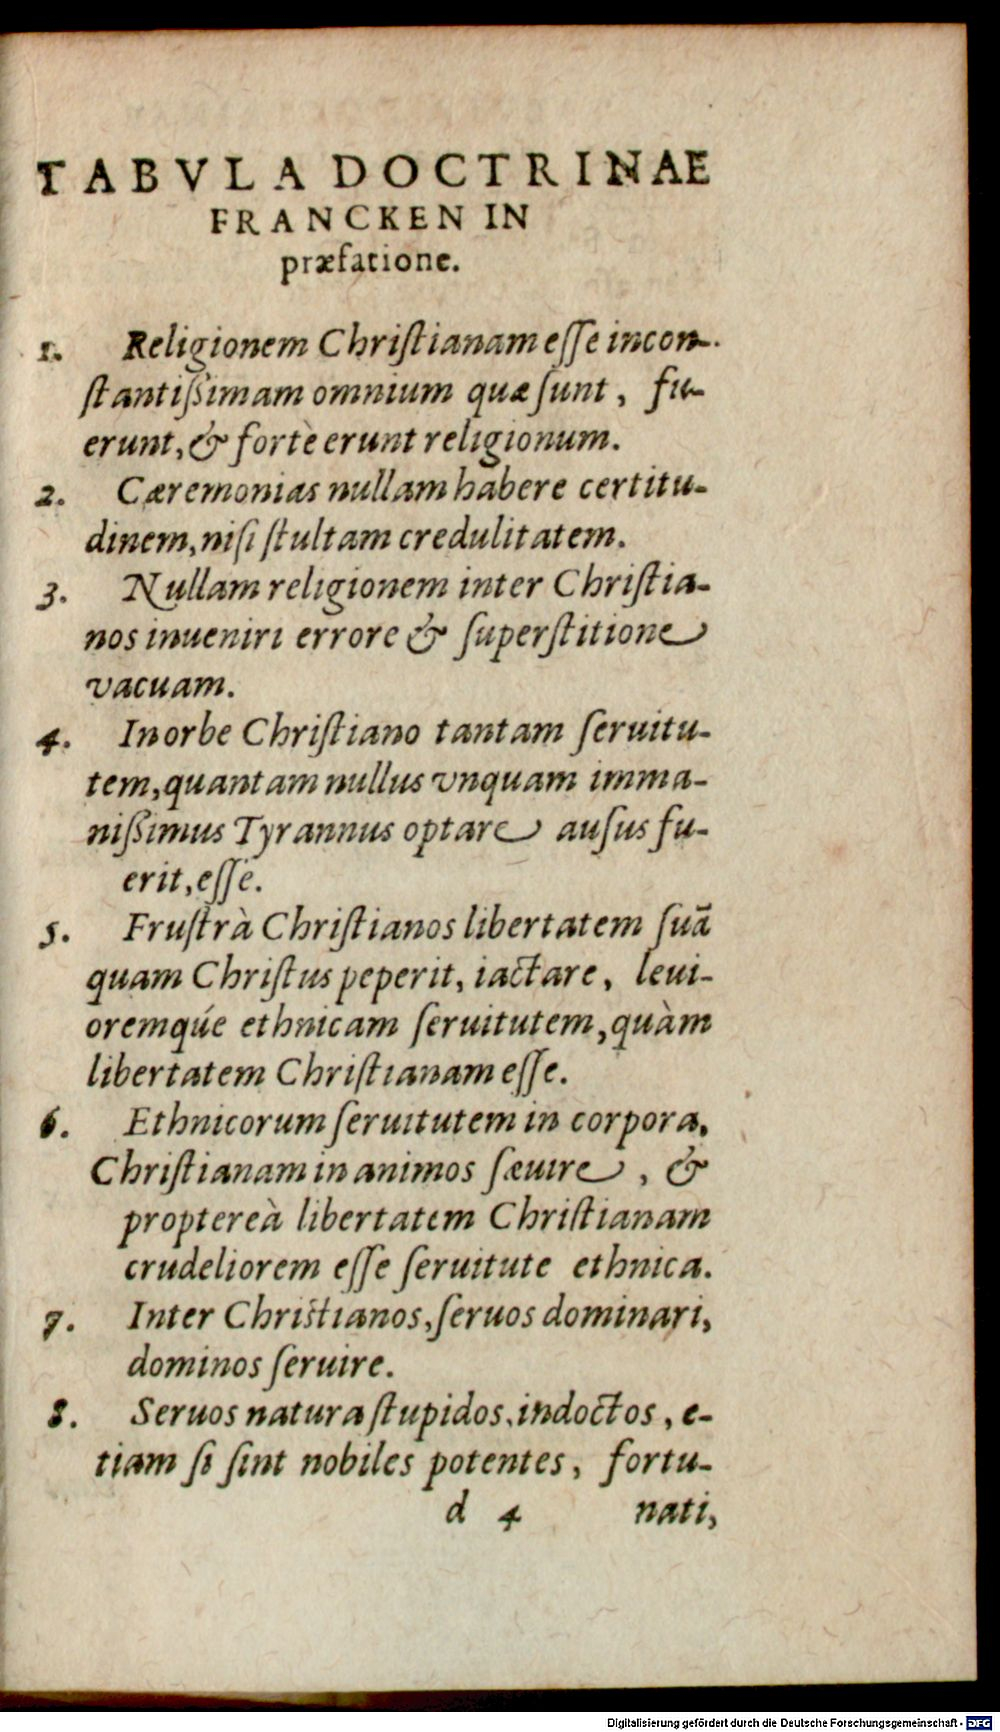 TABVLA DOCTRINAE
FRANCKEN IN
præfatione.
1. Religionem Chriſtianam eſſe incon-
ſtantiſsimam omnium quæ ſunt, fu-
erunt, & fortè erunt religionum.
2. Cæremonias nullam habere certitu-
dinem, niſi ſtultam credulitatem.
3. Nullam religionem inter Chriſtia-
nos inueniri errore & ſuperſtitione
vacuam.
4. In orbe Chriſtiano tantam ſeruitu-
tem, quantam nullus vnquam imma-
niſsimus Tyrannus optare auſus fu-
erit, eſſe.
5. Fruſtrà Chriſtianos libertatem ſuā
quam Chriſtus peperit, iactare, leui-
oremqúe ethnicam ſeruitutem, quàm
libertatem Chriſtianam eſſe.
6. Ethnicorum ſeruitutem in corpora,
Chriſtianam in animos ſæuire, &
proptereà libertatem Chriſtianam
crudeliorem eſſe ſeruitute ethnica.
7. Inter Chriſtianos, ſeruos dominari,
dominos ſeruire.
8. Seruos natura ſtupidos, indoctos, e-
tiam ſi ſint nobiles potentes, fortu-
d 4 nati,
Digitalisierung gefördert durch die Deutsche Forschungsgemeinschaft - DFG